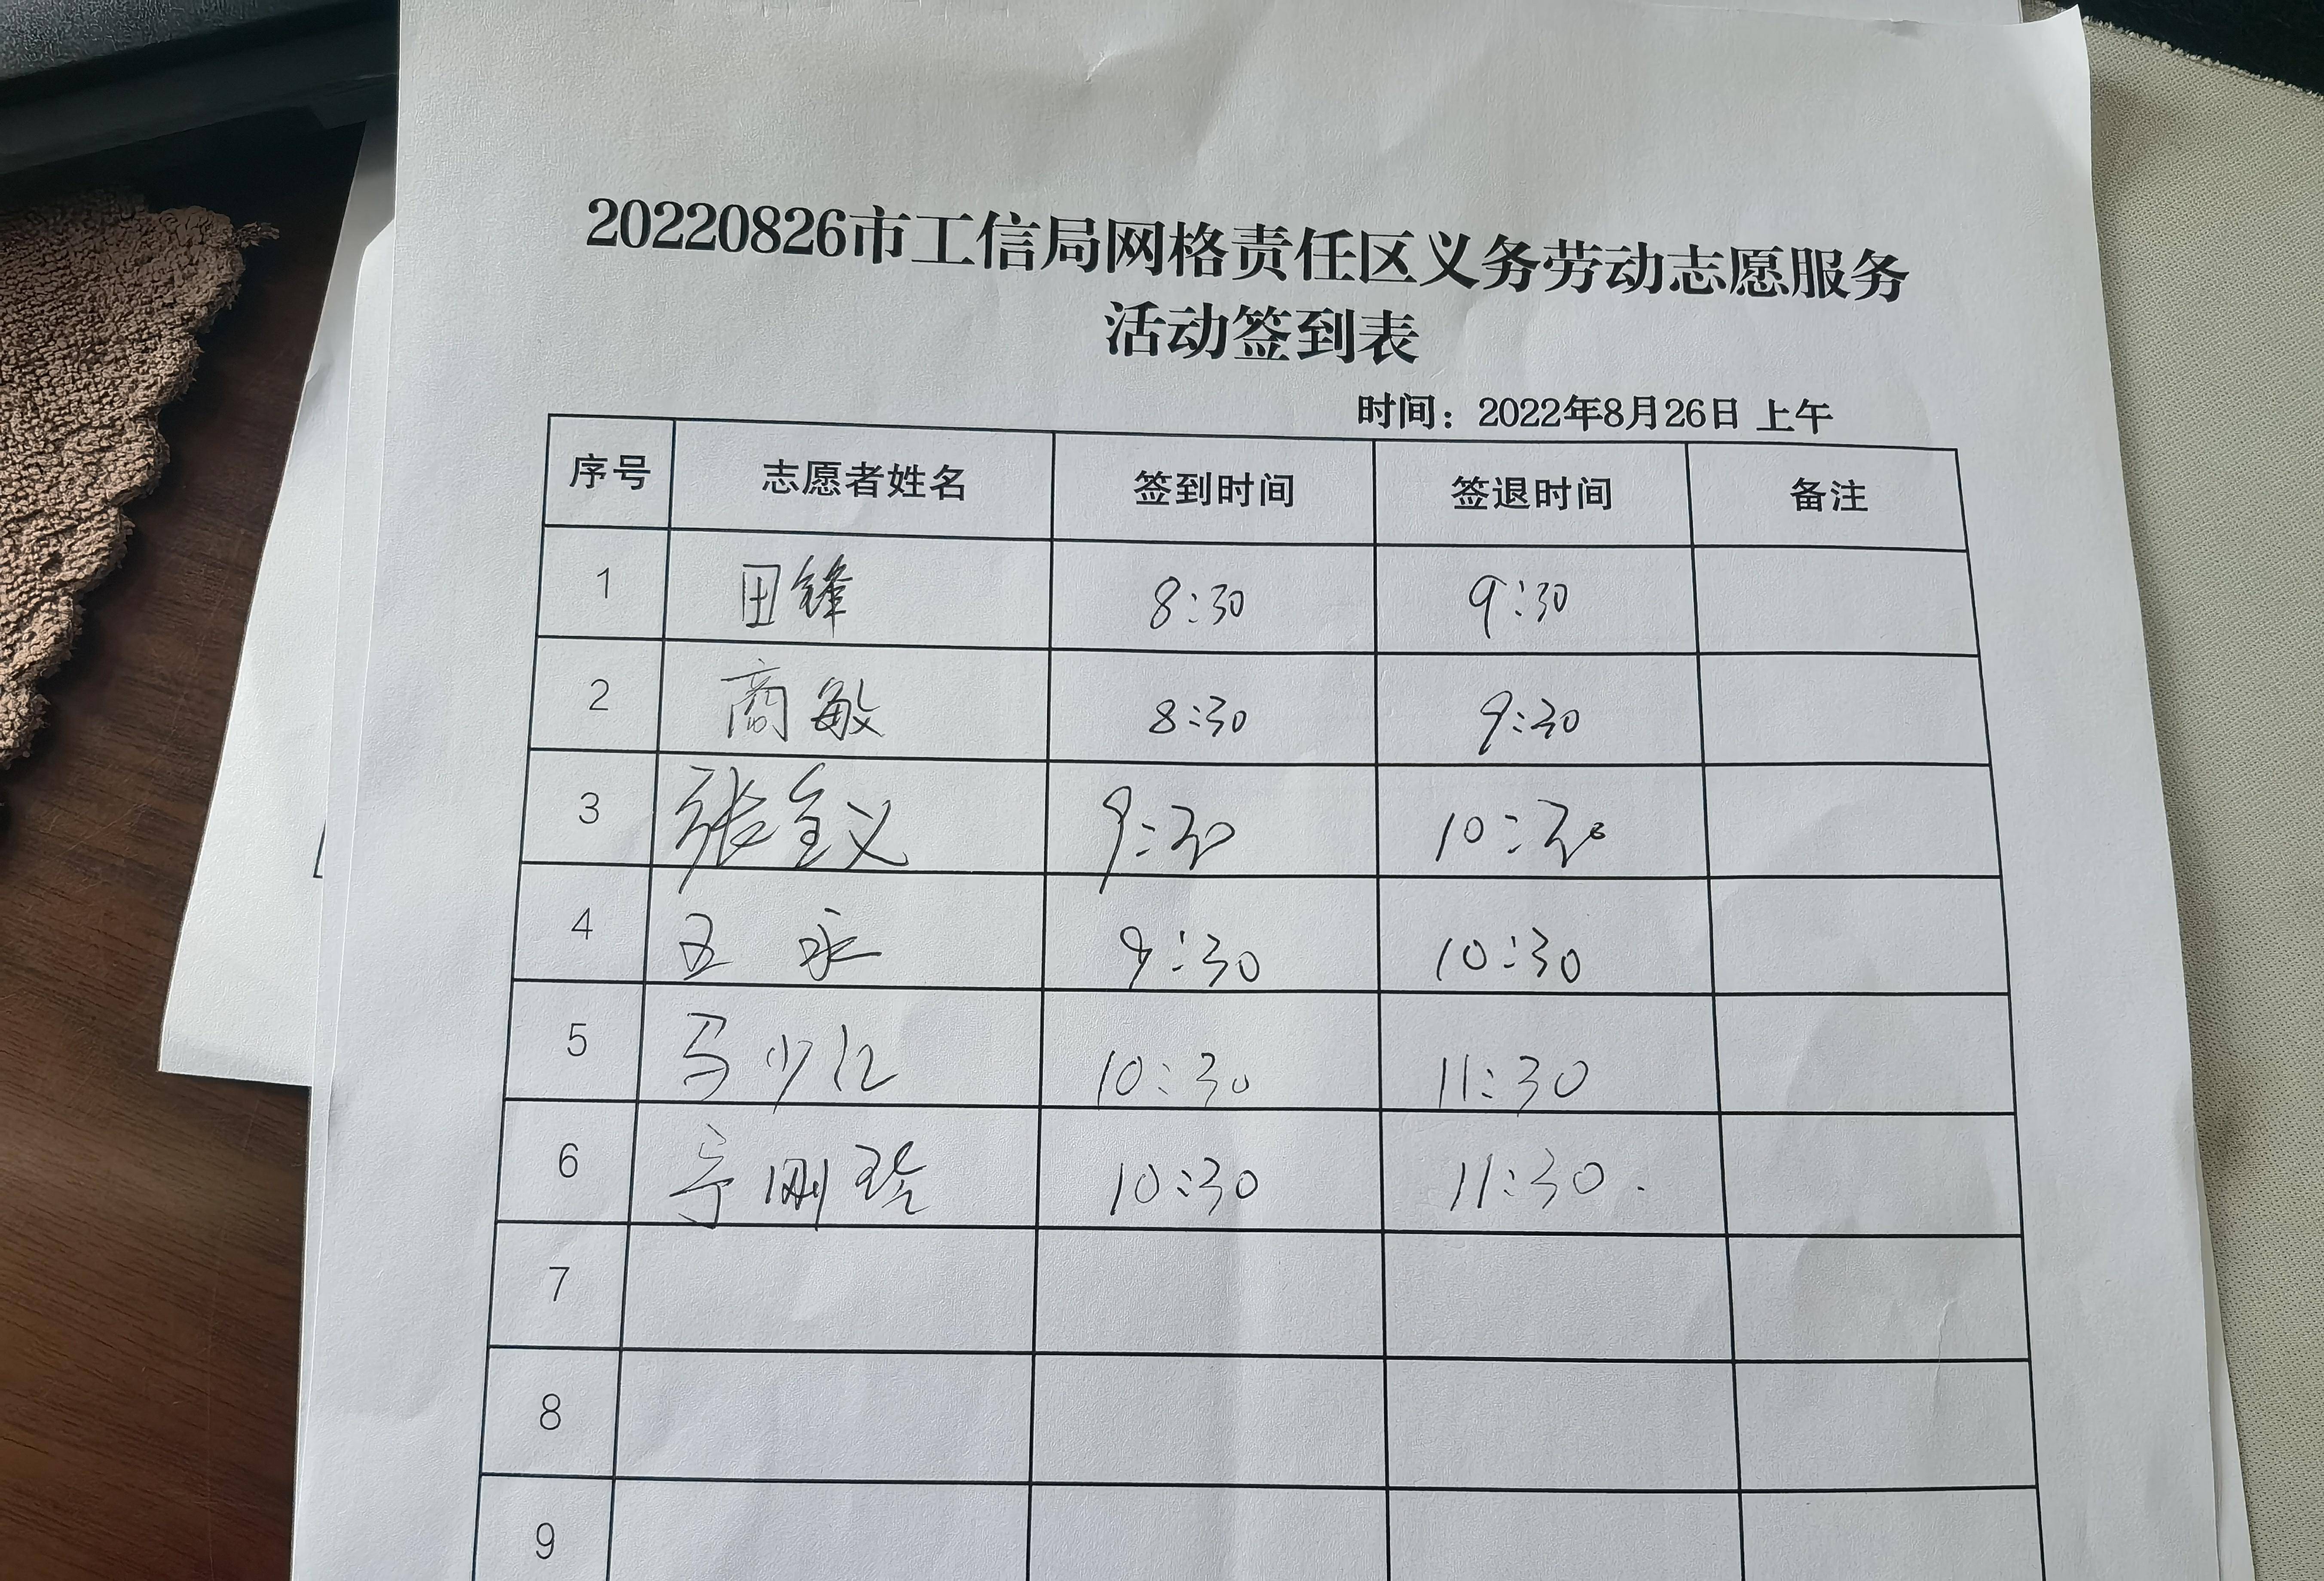 20220826市工信局网格责任区义务劳动志愿服务
活动签到表
时间：2022年8月26日 上午
序号 志愿者姓名 签到时间 签退时间 备注
1 田锋 8:30 9:30
2 商敏 8:30 9:30
3 张全义 9:30 10:30
4 王永 9:30 10:30
5 马少江 10:30 11:30
6 10:30 11:30
7
8
9